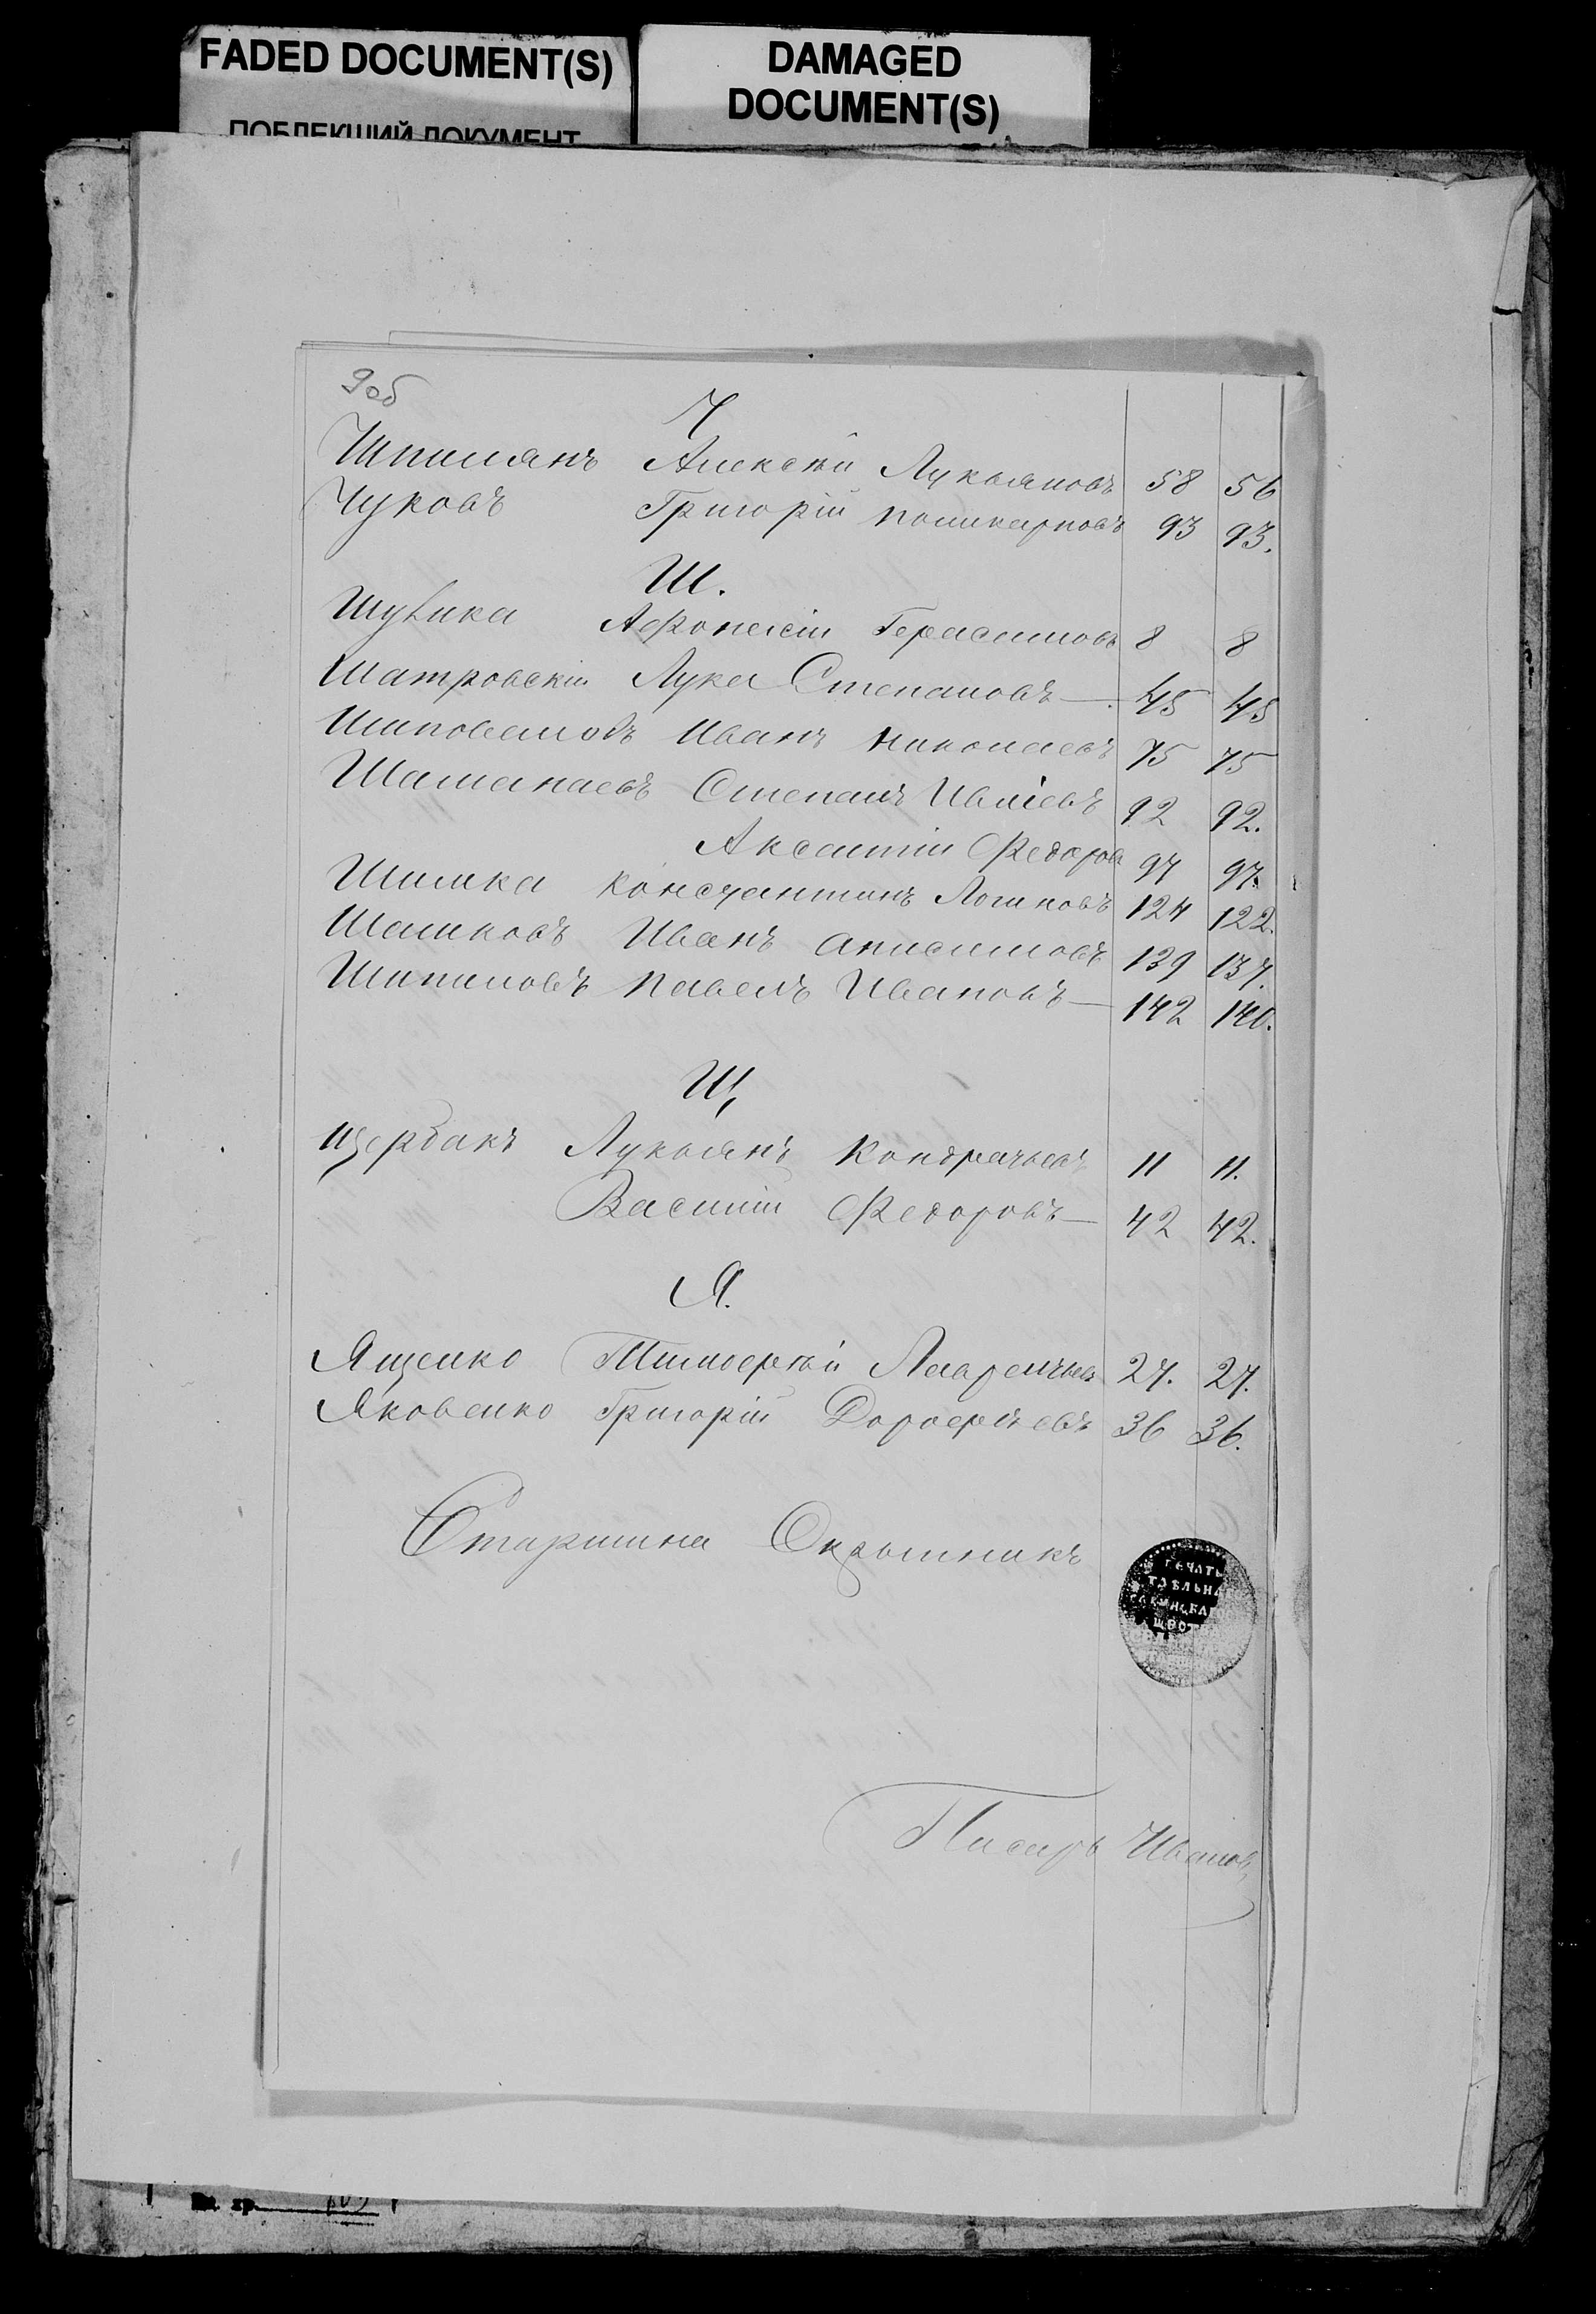 FADED DOCUMENT(S)
ПОБЛЕКШИЙ ДОКУМЕНТ
DAMAGED
DOCUMENT(S)
9об
Ч
Шпилянъ Алексѣй Лукьяновъ 58 56
Чуковъ Григорій Поликарповъ 93 93.
Ш.
Шулика Афонасій Герасимовъ 8 8
Шатровскій Лука Степановъ — 45 45
Шаповаловъ Иванъ Николаевъ 75 75
Шаманаевъ Степанъ 92 92.
Аксентій Федоров 97 97.
Шишка Константинъ Логиновъ 124 122.
Шашковъ Иванъ Анисимовъ 139 137.
Шипиловъ Павелъ Ивановъ — 142 140.
Щ
Щербакъ Лукьянъ Кондратьевъ 11 11.
Василій Федоровъ — 42 42.
Я.
Ященко Тимофѣй Лаврентьев 27. 27.
Яковенко Григорій Дорофѣевъ 36 36.
Старшина
ПЕЧАТЬ
Писарь Иванов